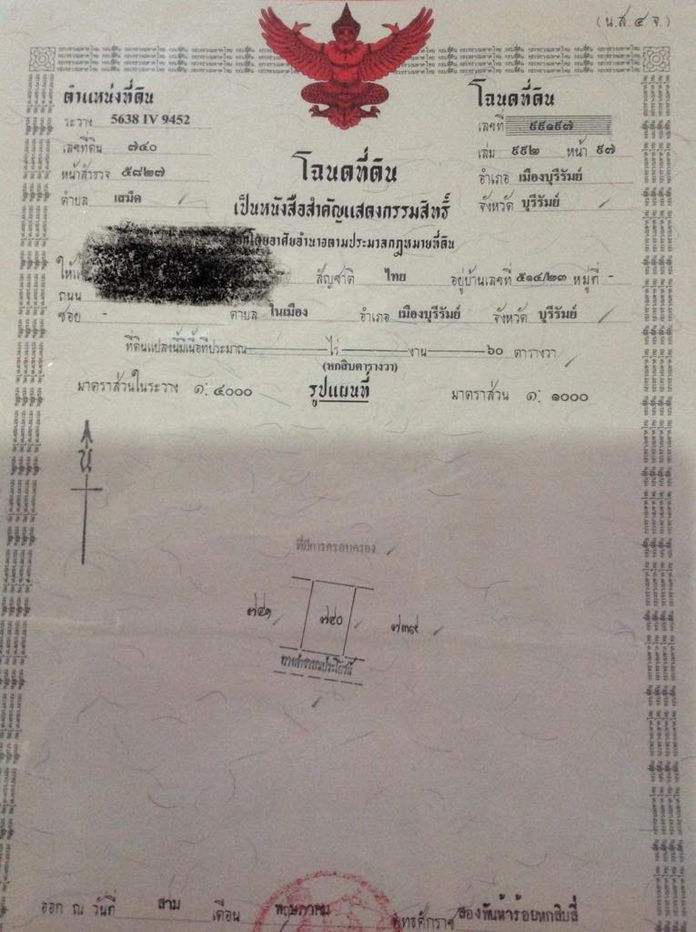 (น.ส. ๔ จ.)
ตำแหน่งที่ดิน
ระวาง 5638 IV 9452
เลขที่ดิน ๗๔๐
หน้าสำรวจ ๕๘๒๗
ตำบล เสม็ด
โฉนดที่ดิน
เลขที่ ๙๙๑๙๗
เล่ม ๙๙๒ หน้า ๙๗
อำเภอ เมืองบุรีรัมย์
จังหวัด บุรีรัมย์
โฉนดที่ดิน
เป็นหนังสือสำคัญแสดงกรรมสิทธิ์
ออกโดยอาศัยอำนาจตามประมวลกฎหมายที่ดิน
สัญชาติ ไทย อยู่บ้านเลขที่ ๕๑๔/๒๓ หมู่ที่ -
ถนน
ซอย - ตำบล ในเมือง อำเภอ เมืองบุรีรัมย์ จังหวัด บุรีรัมย์
ที่ดินแปลงนี้มีเนื้อที่ประมาณ ไร่ งาน ๖๐ ตารางวา
(หกสิบตารางวา)
มาตราส่วนในระวาง ๑: ๔๐๐๐ รูปแผนที่ มาตราส่วน ๑: ๑๐๐๐
น
ที่มีการครอบครอง
๗๔๑ ๗๔๐ ๗๓๙
ทางสาธารณประโยชน์
ออก ณ วันที่ สาม เดือน พฤษภาคม พุทธศักราช สองพันห้าร้อยหกสิบสี่